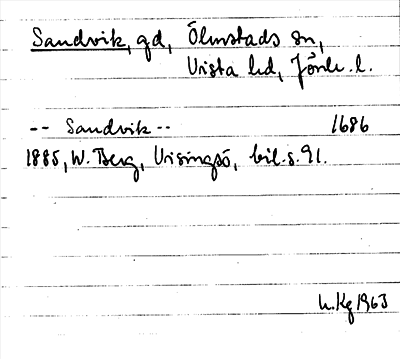 Sandvik, gd, Ölmstads sn,
Vista hd, Jönk. l.
-- Sandvik -- 1686
1885, W. Berg, Visingsö, bil. s. 91.
h. Kg 1963